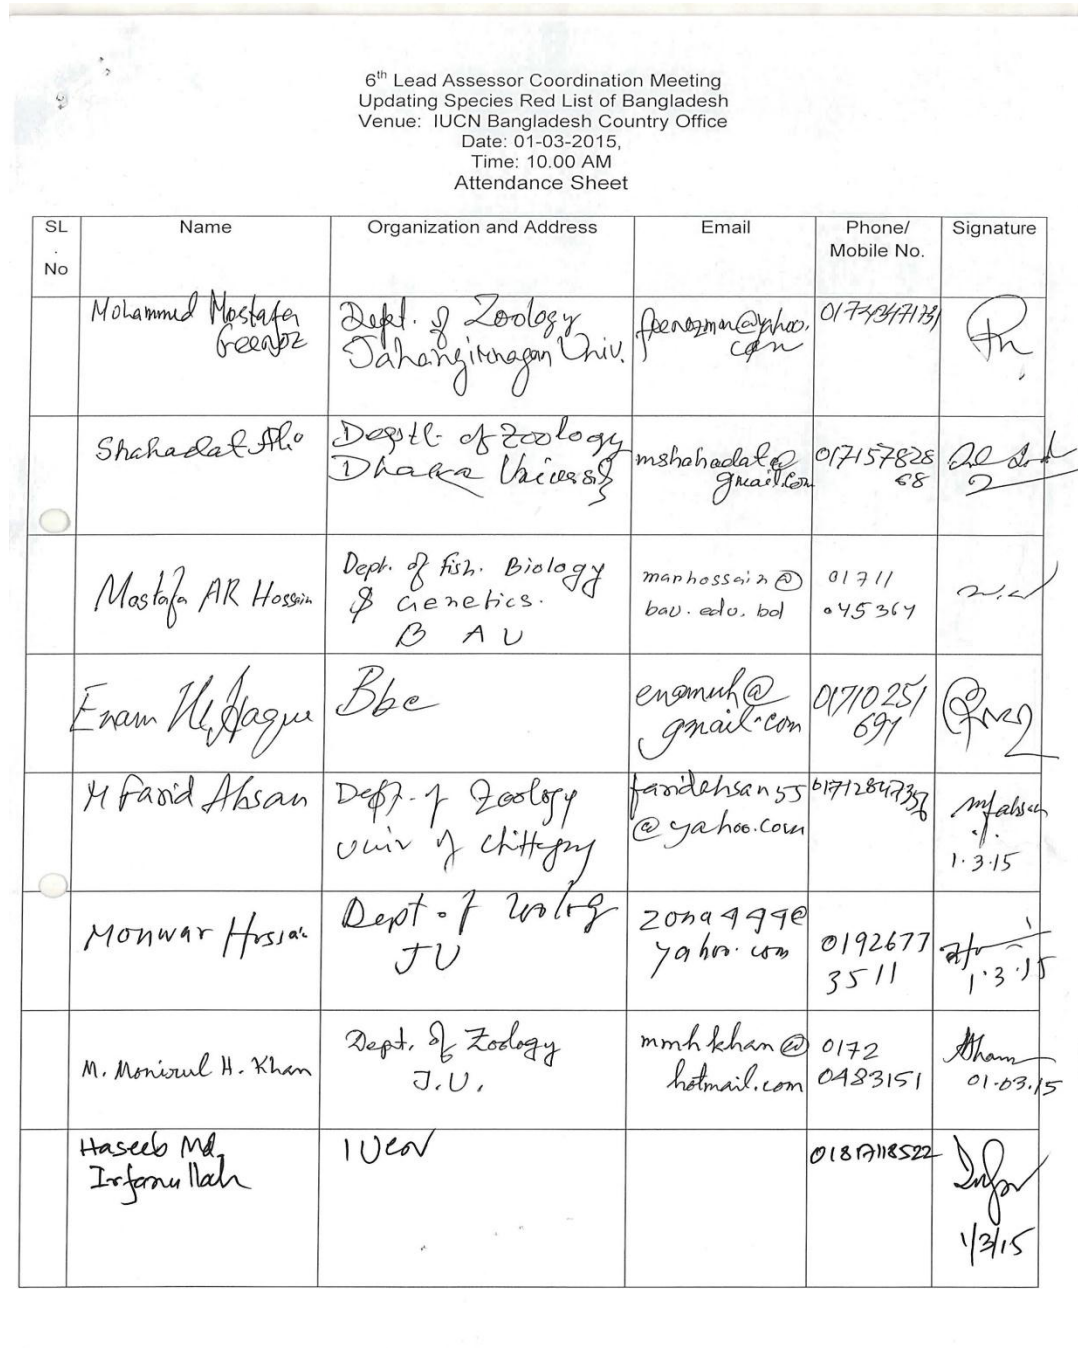 6th Lead Assessor Coordination Meeting
Updating Species Red List of Bangladesh
Venue: IUCN Bangladesh Country Office
Date: 01-03-2015,
Time: 10.00 AM
Attendance Sheet
SL. No Name Organization and Address Email Phone/ Mobile No. Signature
Mohammed Mostafa
Feeroz
Dept. of Zoology
Jahangirnagar Univ.
feerozmm@yahoo.
com
Shahadat Ali
Deptt. of Zoology
Dhaka University
mshahadat@
gmail.com
017157828
68
Mostafa AR Hossain
Dept. of Fish. Biology
& Genetics.
B A U
marhossain@
bau.edu.bd
01711
045364
Enam Ul Haque
Bbc
enamuh@
gmail.com
01710251
697
M Farid Ahsan
Dept. of Zoology
Univ of Chittagong
faridahsan55
@yahoo.com
mfahsan
1.3.15
Monwar Hossain
Dept. of Zoology
JU
zona999@
yahoo.com
0192677
3511
1.3.15
M. Monirul H. Khan
Dept. of Zoology
J.U.
mmhkhan@
hotmail.com
0172
0483151
01.03.15
Haseeb Md.
Irfanullah
IUCN
01817118522
1/3/15